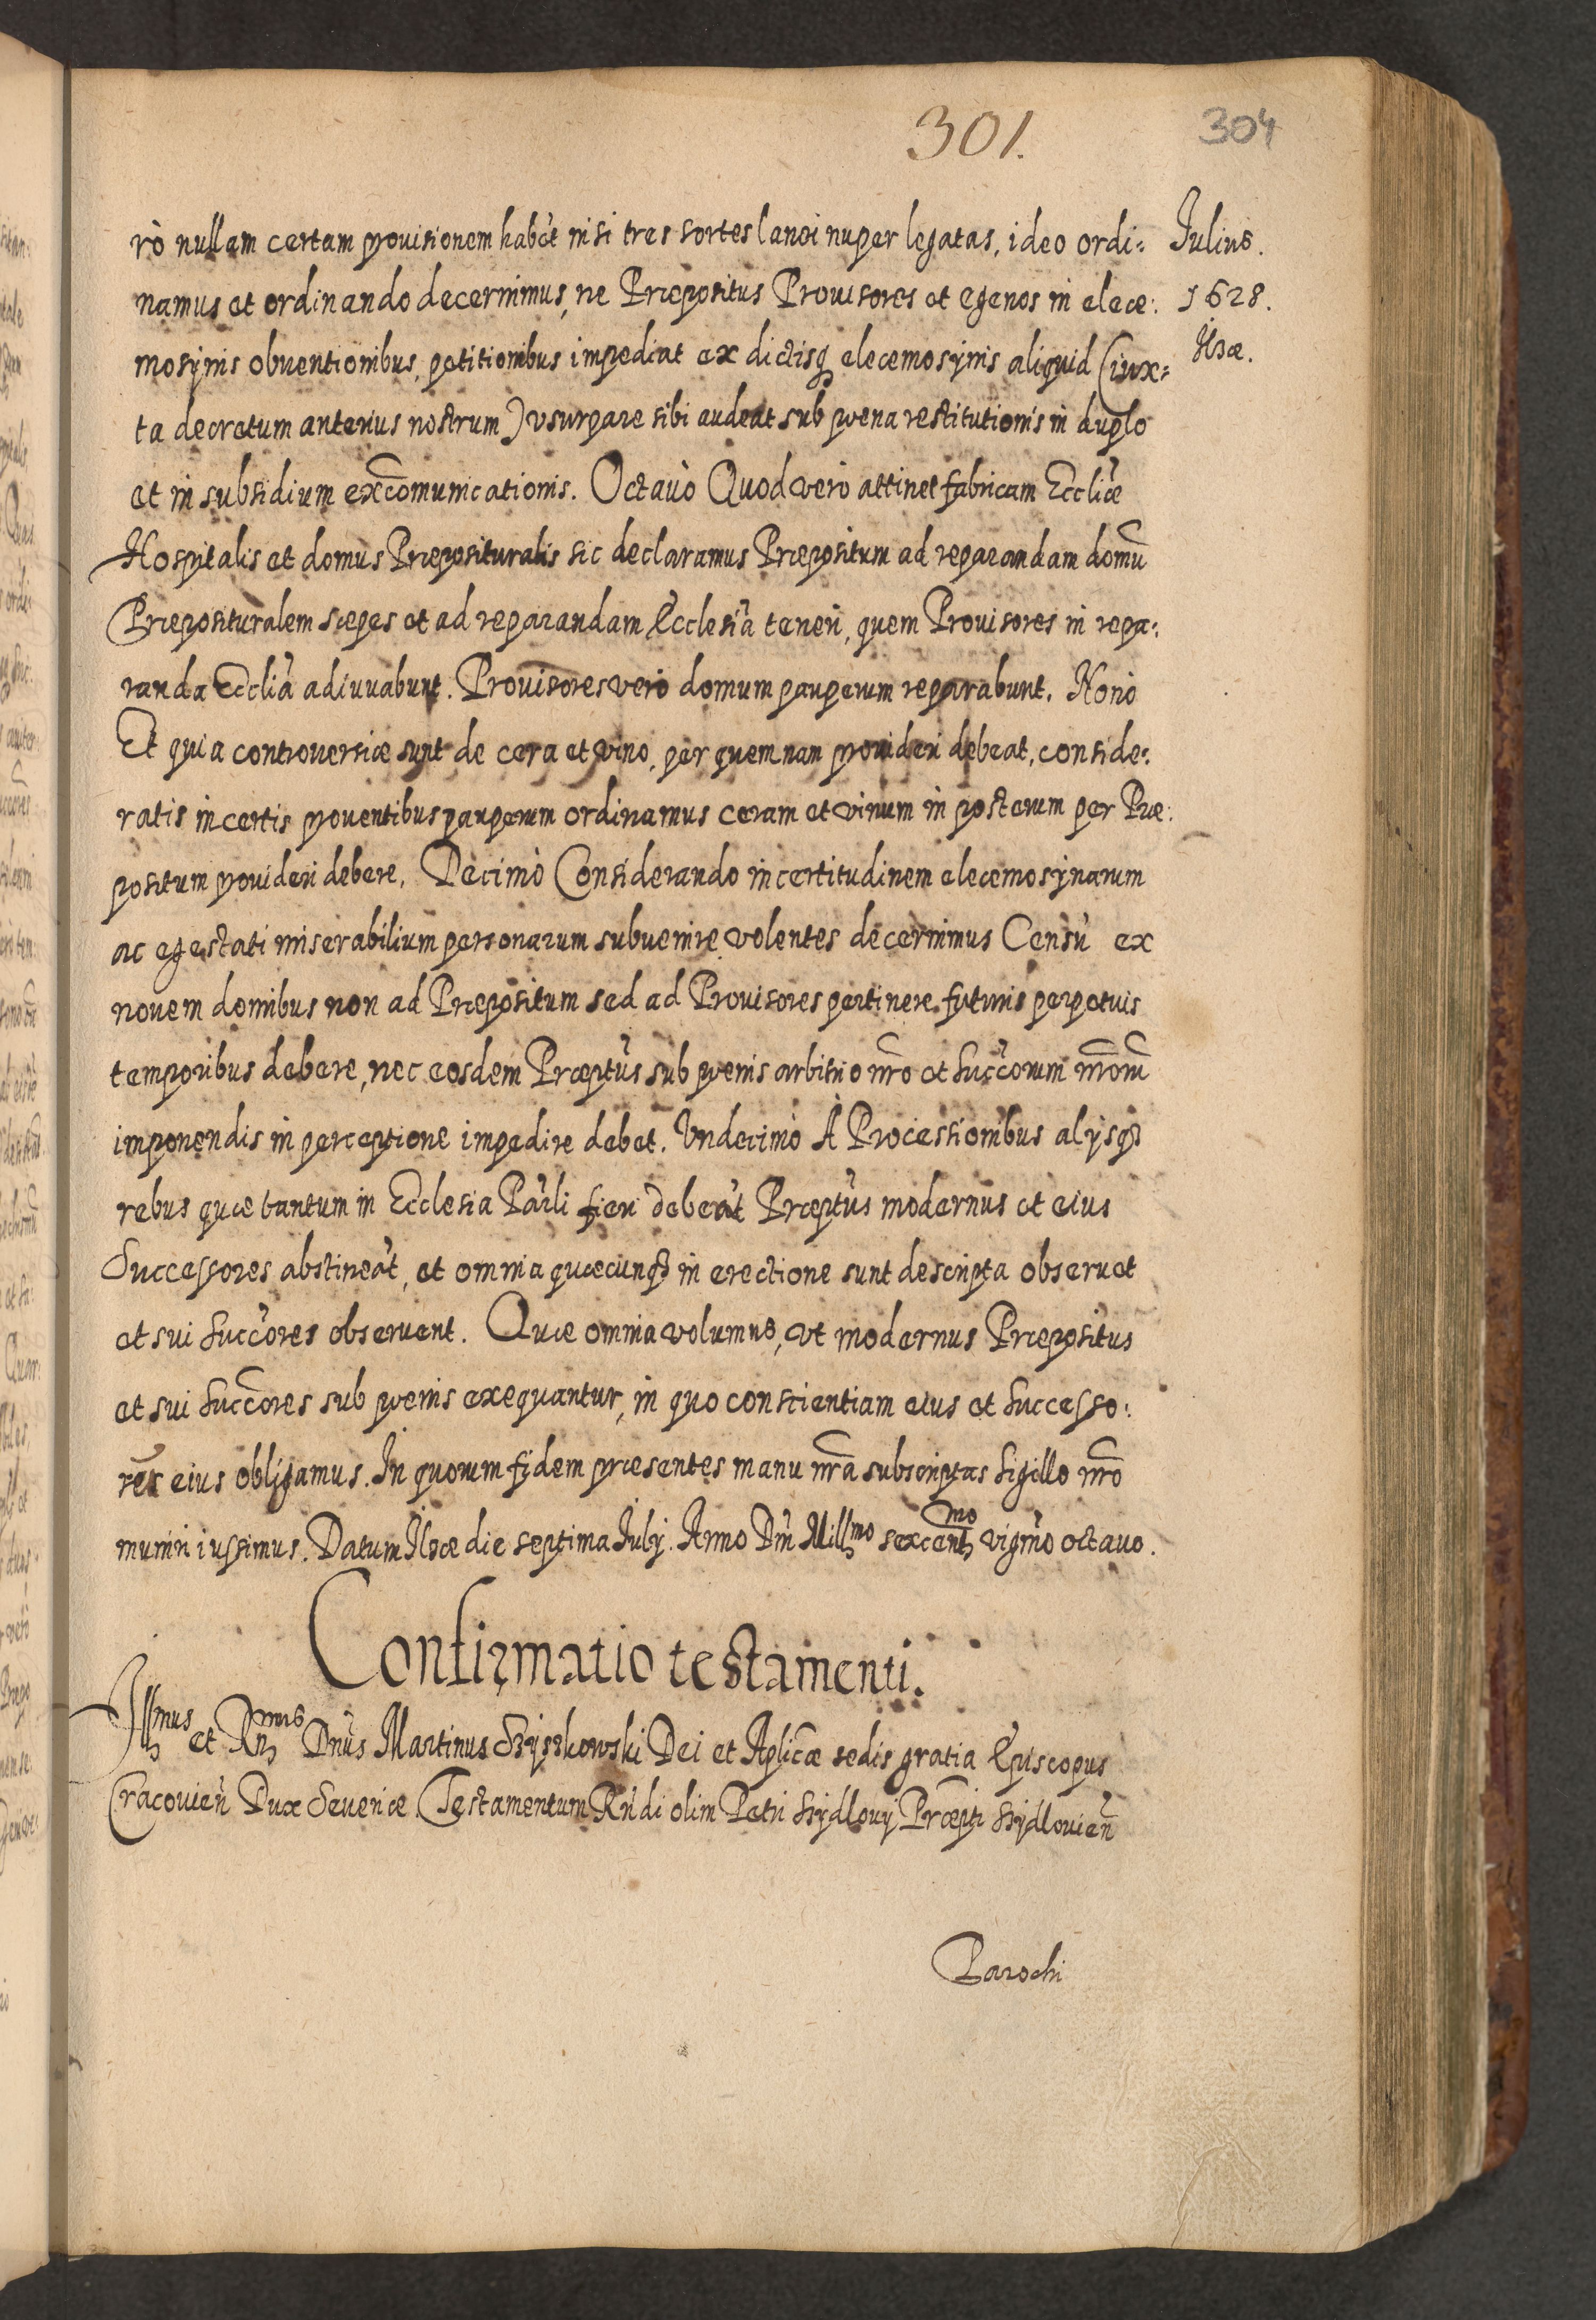 301.
304
rò nullam certam prouisionem habẽt nisi tres sortes lanei nuper legatas, ideo ordi:
Julius.
namus et ordinando decernimus, ne Præpositus Prouisores et egenos in elee:
1628.
mosynis obuentionibus, petitionibus impediat ex dictisq eleemosynis aliquid (iux:
Ilzæ.
ta decretum anterius nostrum) vsurpare sibi audeat sub pœna restitutionis in duplo
et in subsidium excõmunicationis. Octauò Quod verò attinet fabricam Eccliæ
Hospitalis et domus Præposituralis sic declaramus Præpositum ad reparandam domũ
Præposituralem sæpes et ad reparandam Ecclesiã teneri, quem Prouisores in repa:
randa Ecclia adiuuabunt. Prouisores verò domum pauperum reparabunt. Nonò
Et quia controuersiæ sunt de cera et vino, per quemnam prouideri debeat, conside:
ratis incertis prouentibus pauperum ordinamus ceram et vinum in posterum per Præ:
positum prouideri debere. Decimò Considerando incertitudinem eleemosynarum
ac egestati miserabilium personarum subuenire volentes decernimus Censũ ex
nouem domibus non ad Præpositum sed ad Prouisores pertinere futuris perpetuis
temporibus debere, nec eosdem Præptũs sub pœnis arbitrio nr̃o et Succ̃orum nr̃orũ
imponendis in perceptione impedire debet. Vndecimò À Processionibus alijsq
rebus quæ tantum in Ecclesia Par̃li fieri debeãt Præptũs modernus et eius
Successores abstineãt, et omnia quæcunq in erectione sunt descripta obseruet
et sui Succ̃ores obseruent. Quæ omnia volumus, vt modernus Præpositus
et sui Succ̃ores sub pœnis exequantur, in quo conscientiam eius et Successo:
res eius obligamus. In quorum fidem præsentes manu nr̃a subscriptas Sigillo nr̃o
muniri iussimus. Datum Ilzæ die septima Julij. Anno Dñi Millmo sexcentmo vigm̃o octauo.
Confirmatio testamenti.
Illmus et Rñmus Dñus Martinus Szyszkowski Dei et Aplicæ sedis gratia Episcopus
Cracouieñ Dux Seueriæ Testamentum Rñdi olim Petri Szydlouij Præpti Szydlouieñ
Parochi